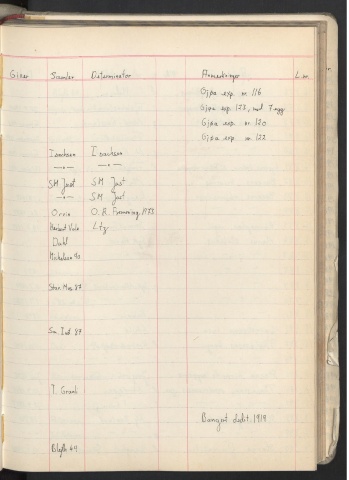 Giver Samler Determinator Anmerkninger L.nr.
Gjøa exp. nr 116
Gjøa exp. 122, med 7 egg
Gjøa exp. nr 120
Gjøa exp. nr 122
Isachsen Isachsen
SM Just SM Just
SM Just
Orvin O.R.
Herbert Lty
Dahl
Michelsen
Stan. Mus. 87
Su. Inst 87
T. Grant
Bangst dedit. 1919